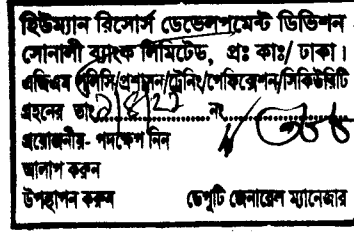 হিউম্যান রিসোর্স ডেভেলপমেন্ট ডিভিশন
সোনালী ব্যাংক লিমিটেড, প্রঃ কাঃ/ ঢাকা।
এজিএম (পলিসি/প্রশাসন/ট্রেনিং/পেকিরেশন/সিকিউরিটি
গ্রহনের তাং........................নং....................
প্রয়োজনীয়- পদক্ষেপ নিন
আলাপ করুন
উপস্থাপন করুন ডেপুটি জেনারেল ম্যানেজার